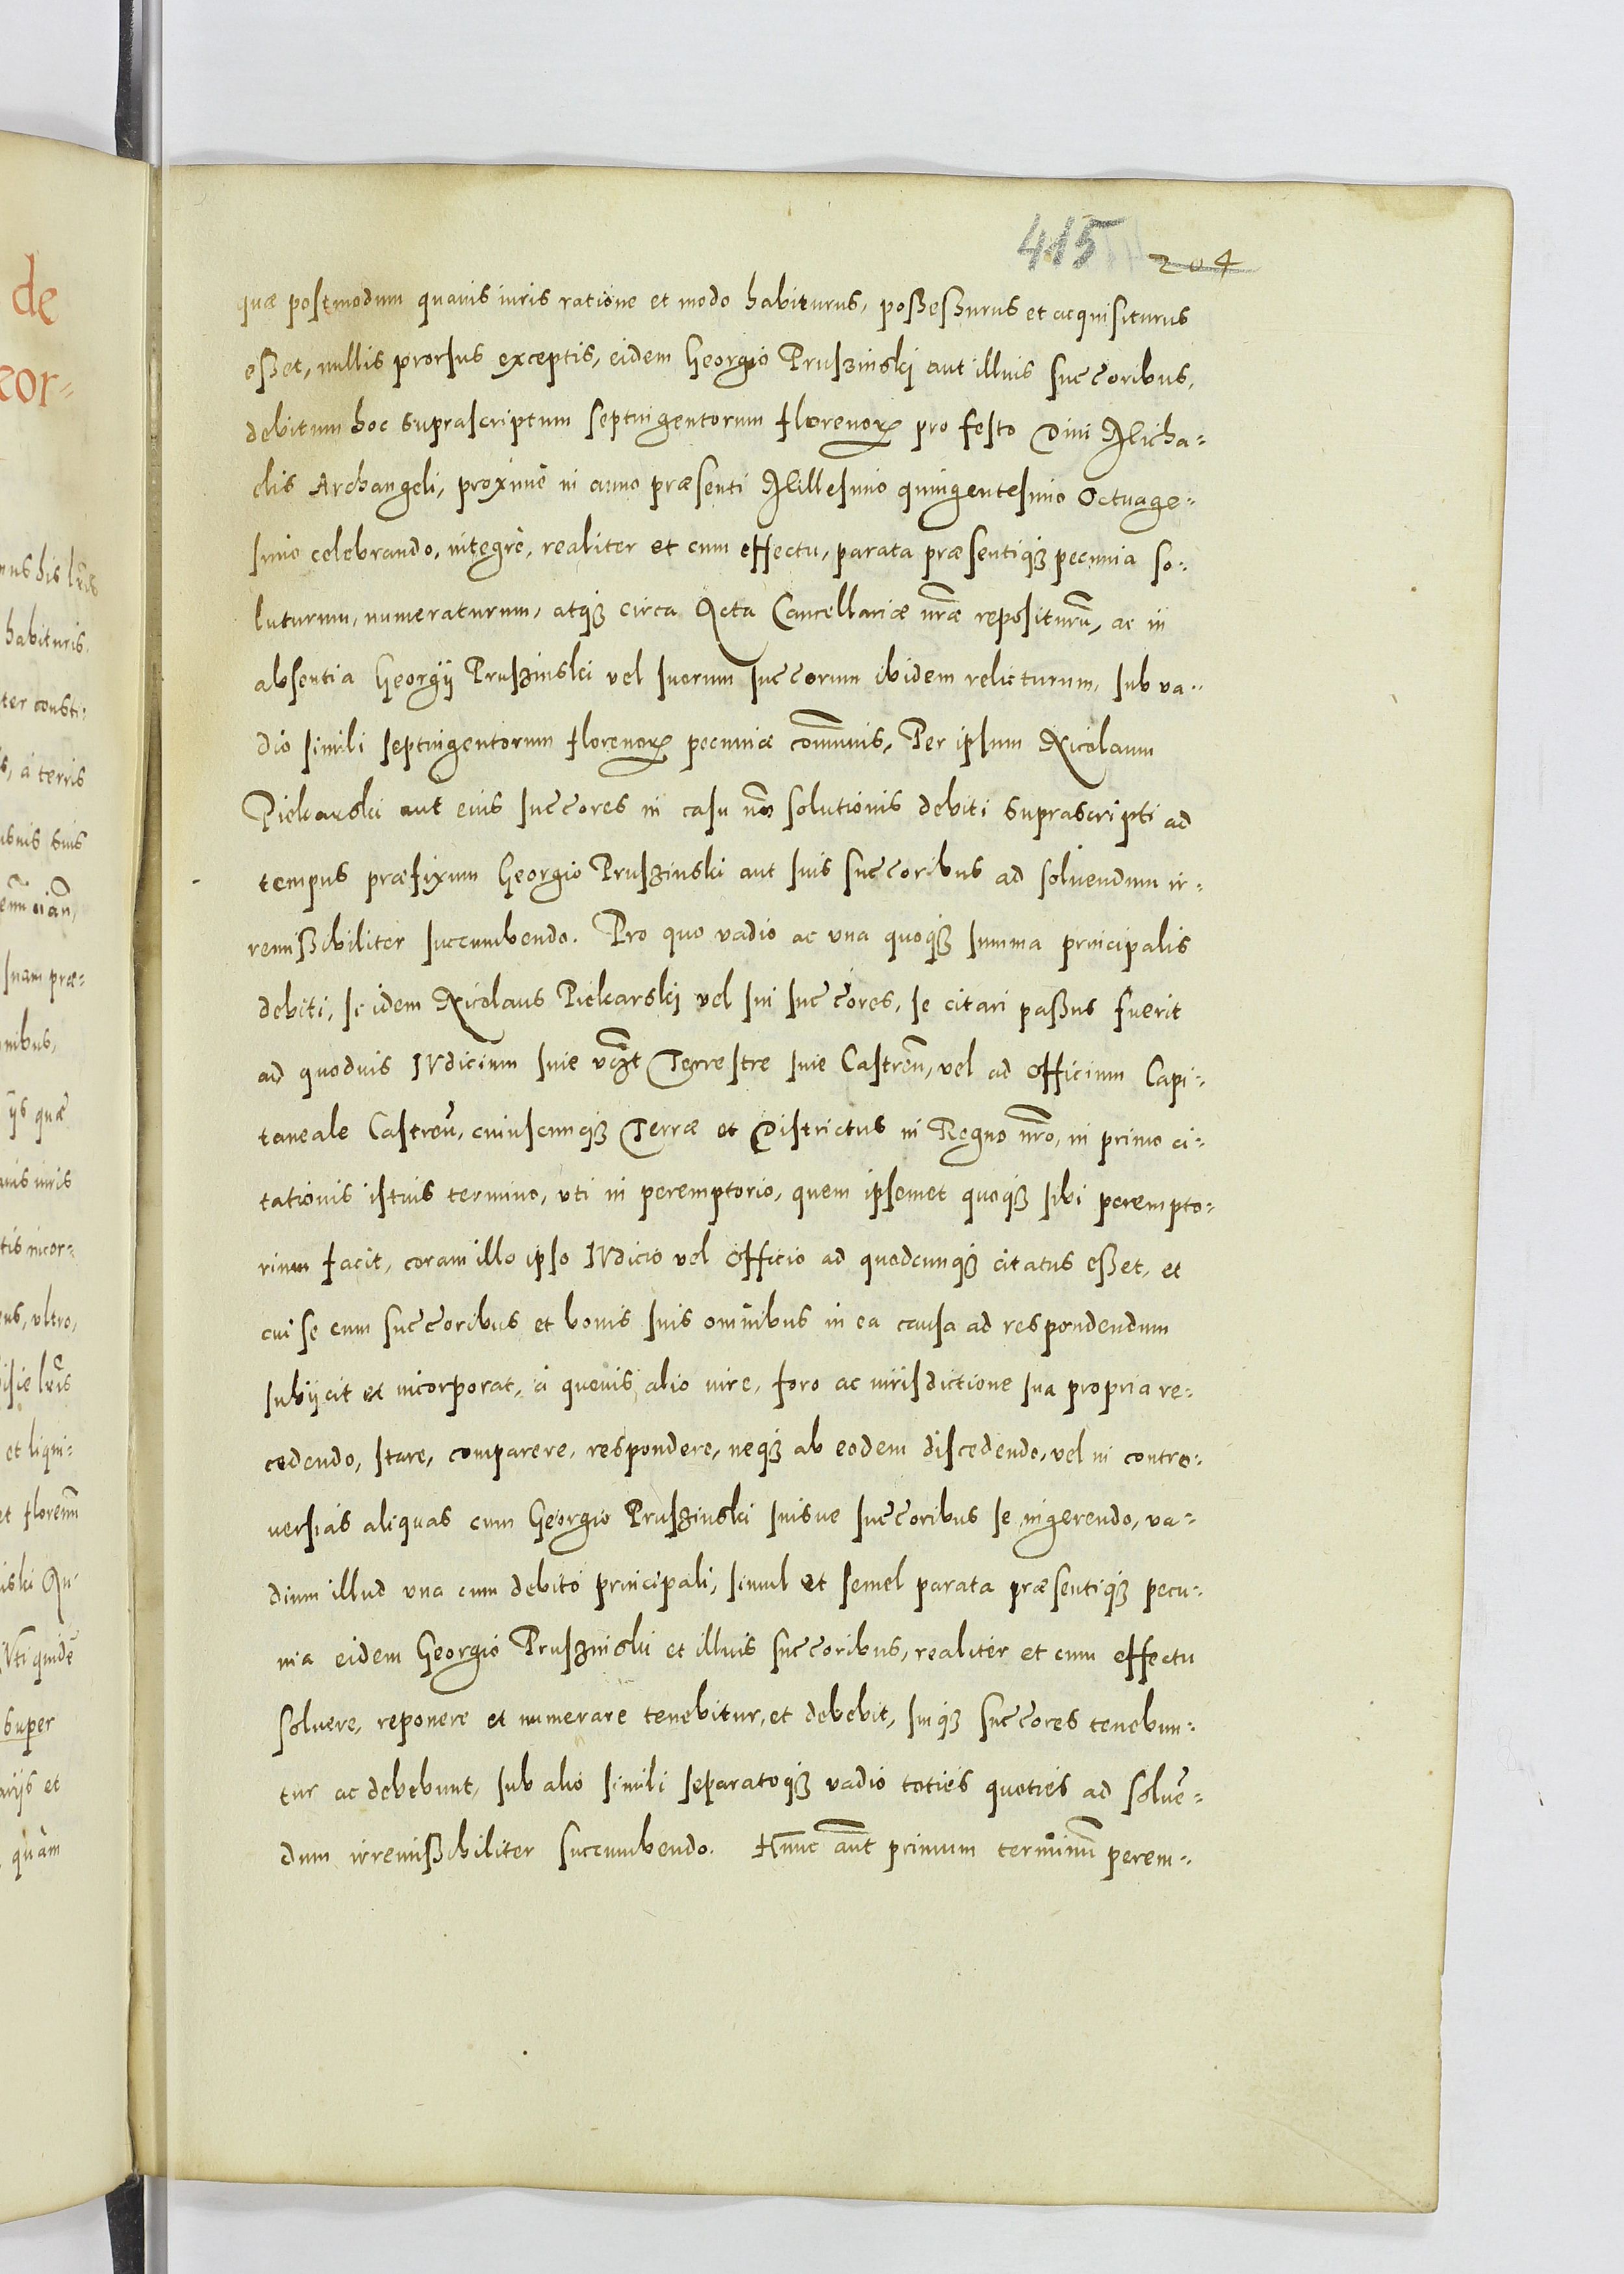 415 204
quæ postmodum quauis iuris ratione et modo habiturus, possessurus et acquisiturus
esset, nullis prorsus exceptis, eidem Georgio Pruszinski aut illius succoribus,
debitum hoc suprascriptum septuigentorum florenorꝝ pro festo Diui Micha-
elis Archangeli, proximè in anno præsenti Millesimo quingentesimo Octuage-
simo celebrando, integrè, realiter et cum effectu, parata præsentiqꝫ pecunia so-
luturum, numeraturum, atqꝫ circa Acta Cancellariæ nr̃æ repositurũ, ac in
absentia Georgij Pruszinski vel suorum succorum ibidem relicturum, sub va-
dio simili septuigentorum florenorꝝ pecuniæ com̃unis, Per ipsum Nicolaum
Piekarski aut eius succores in casu nõ solutionis debiti suprascripti ad
tempus præfixum Georgio Pruszinski aut suis succoribus ad soluendum ir-
remissibiliter succumbendo. Pro quo vadio ac vna quoqꝫ summa principalis
debiti, se idem Nicolaus Piekarski vel sui succores, se citari passus fuerit
ad quoduis IVdicium siue vcꝫt Terrestre siue Castreñ, vel ad Officium Capi-
taneale Castreñ, cuiuscunqꝫ Terræ et Districtus in Regno nr̃o, in primo ci-
tationis istius termino, vti in peremptorio, quem ipsemet quoqꝫ sibi perempto-
rium facit, coram illo ipso IVdicio vel Officio ad quodcunqꝫ citatus esset, et
cui se cum succoribus et bonis suis omnibus in ea causa ad respondendum
subijcit et incorporat, à quouis alio iure, foro ac iurisdictione sua propria re-
cedendo, stare, comparere, respondere, neqꝫ ab eodem discedendo, vel in contro-
uersias aliquas cum Georgio Pruszinski suisue succoribus se ingerendo, va-
dium illud vna cum debito principali, simul et semel parata præsentiqꝫ pecu-
nia eidem Georgio Pruszinski et illius succoribus, realiter et cum effectu
soluere, reponere et numerare tenebitur, et debebit, suiqꝫ succores tenebun-
tur ac debebunt, sub alio simili separatoqꝫ vadio toties quoties ad soluẽ-
dum irremissibiliter succumbendo. Hunc aũt primum terminũ perem-